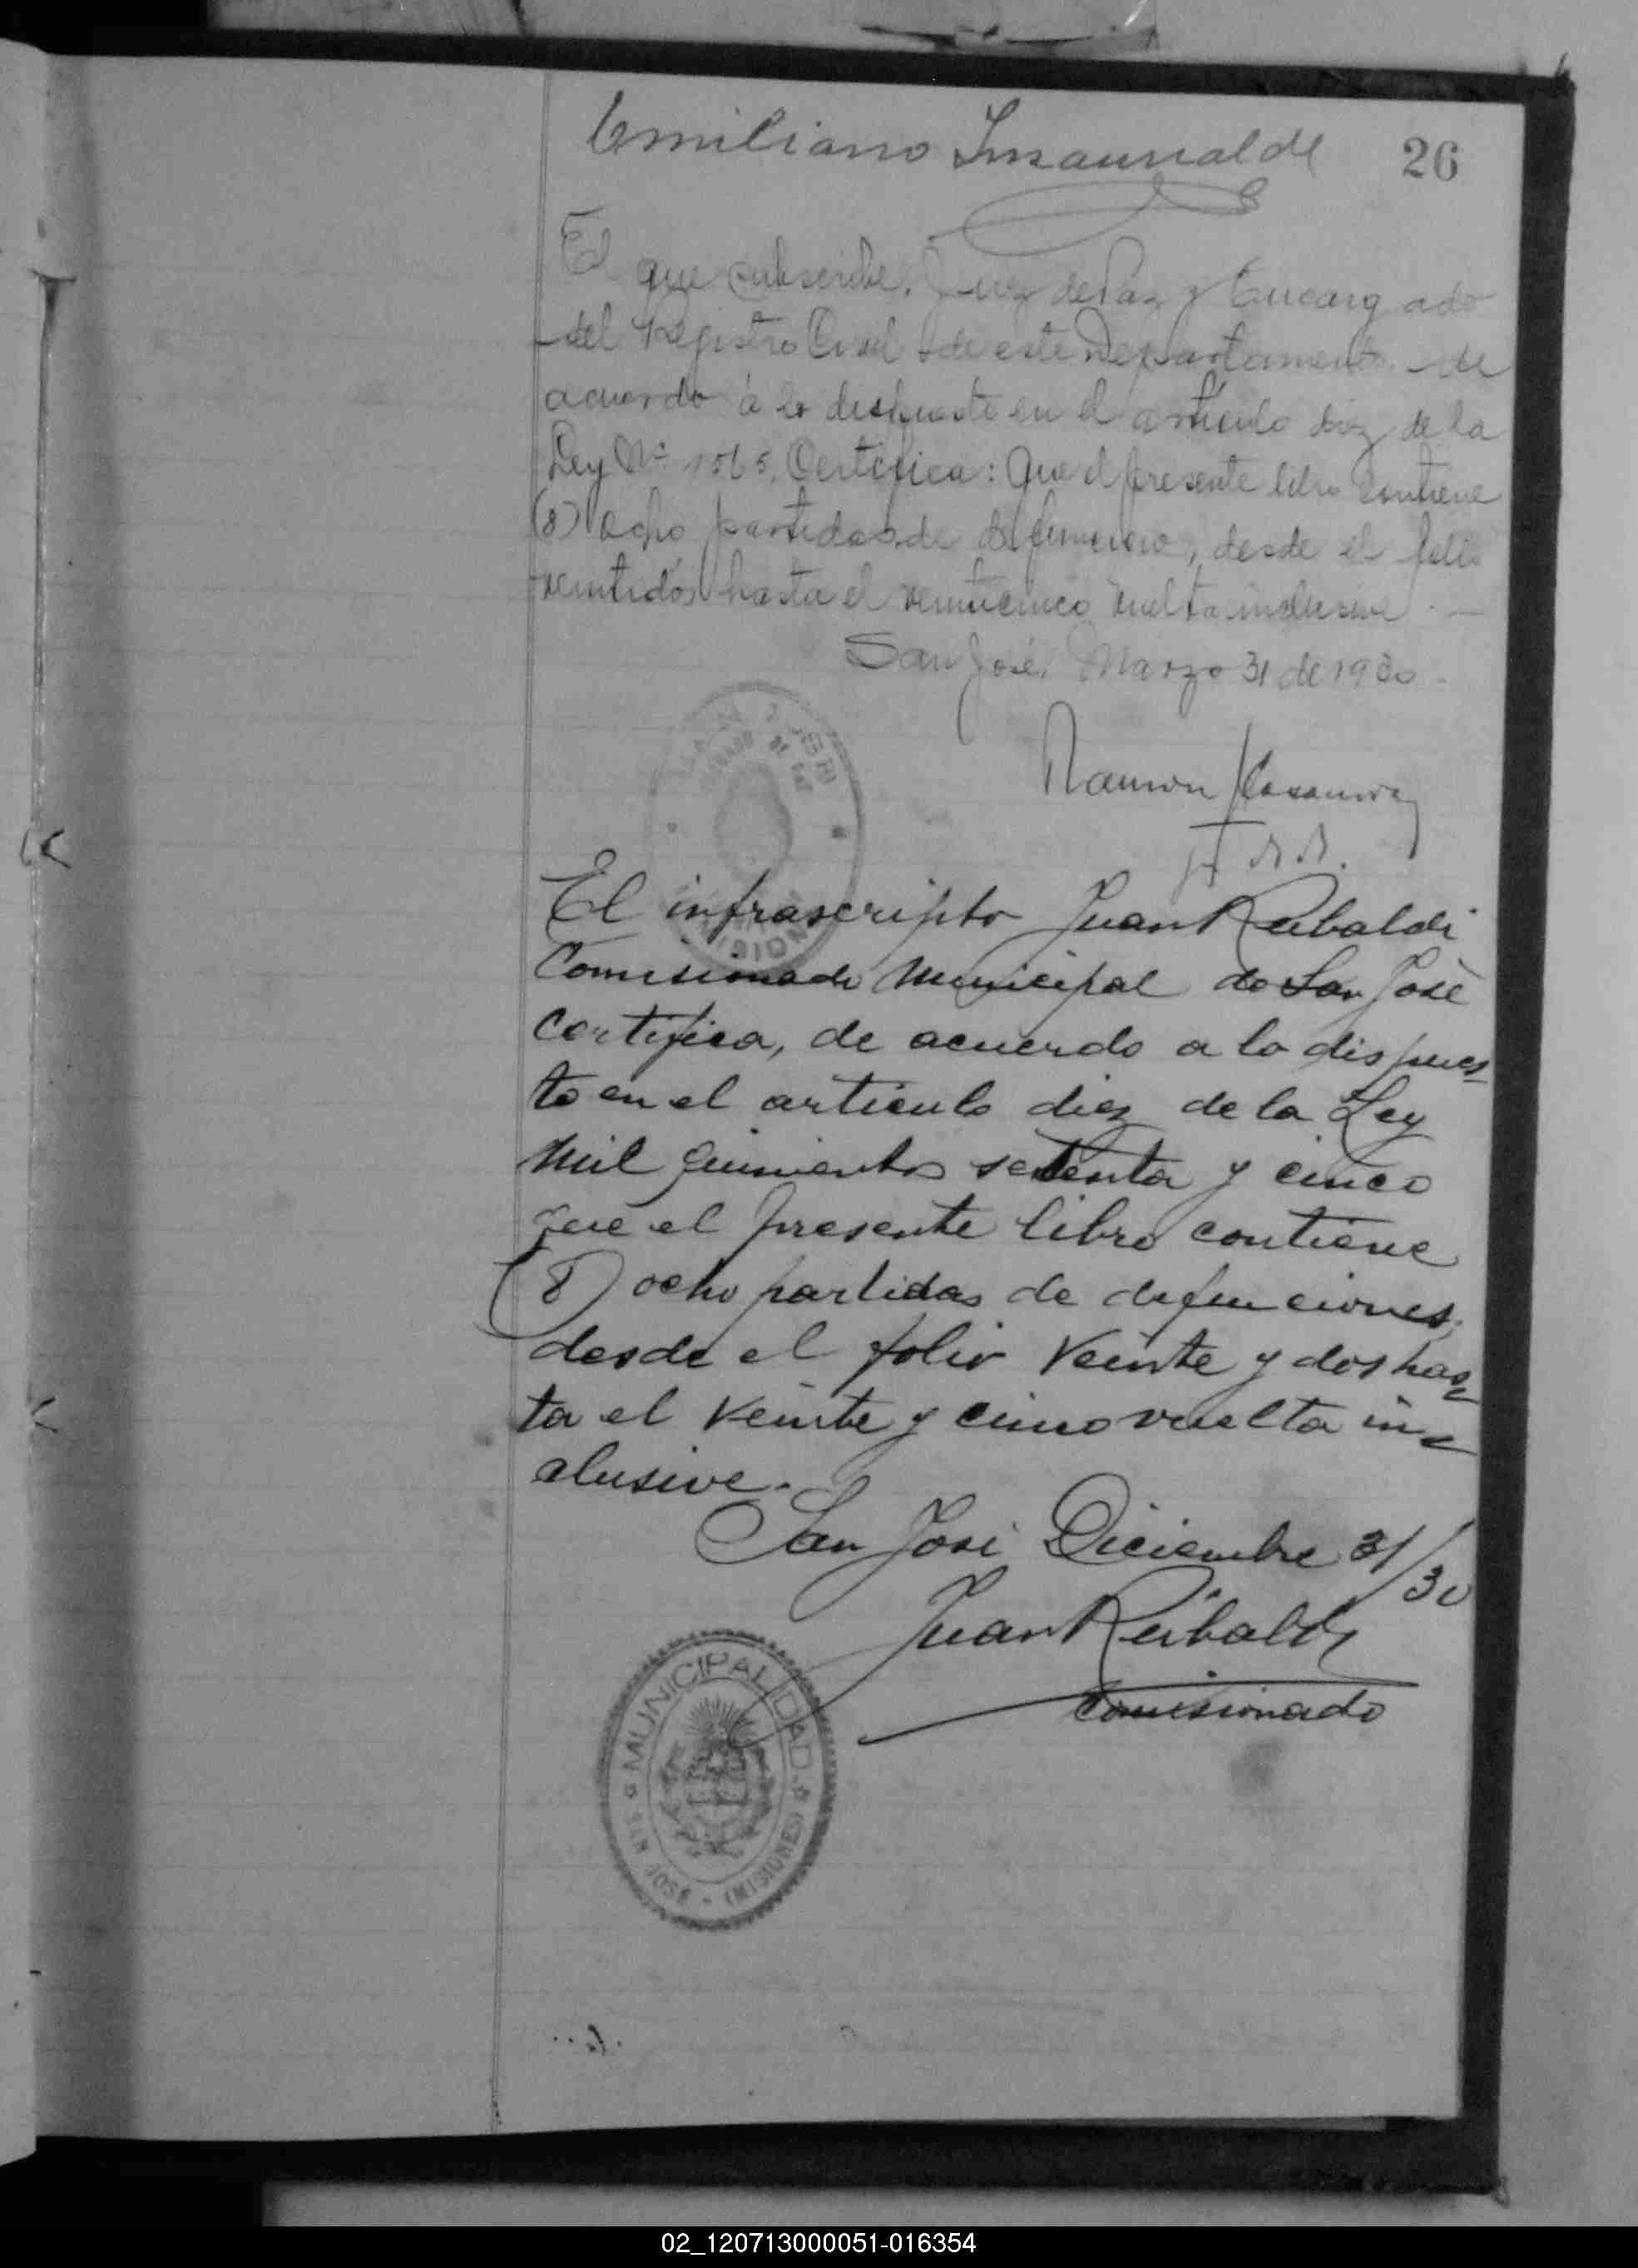 Emiliano Insaurralde
26
El que subscribe, Juez de Paz y Encargado
del Registro Civil de este Departamento de
acuerdo á lo dispuesto en el artículo diez de la
Ley Nº 1565, Certifica: Que el presente libro contiene
(8) ocho partidas de defuncion, desde el folio
veintidós hasta el veinticinco vuelta inclusive. —
San José, Marzo 31 de 1930.
Ramon
SAN JOSE
JUZGADO DE PAZ
MISIONES
El infrascripto Juan Rebaldi
Comisionado Municipal de San José
certifica, de acuerdo a lo dispues-
to en el articulo diez de la Ley
mil quinientos setenta y cinco
que el presente libro contiene
(8) ocho partidas de defunciones,
desde el folio veinte y dos has-
ta el veinte y cinco vuelta in-
clusive.
San José Diciembre 31/30
Juan Rebaldi
Comisionado
MUNICIPALIDAD
SAN JOSÉ - (MISIONES)
02_120713000051-016354